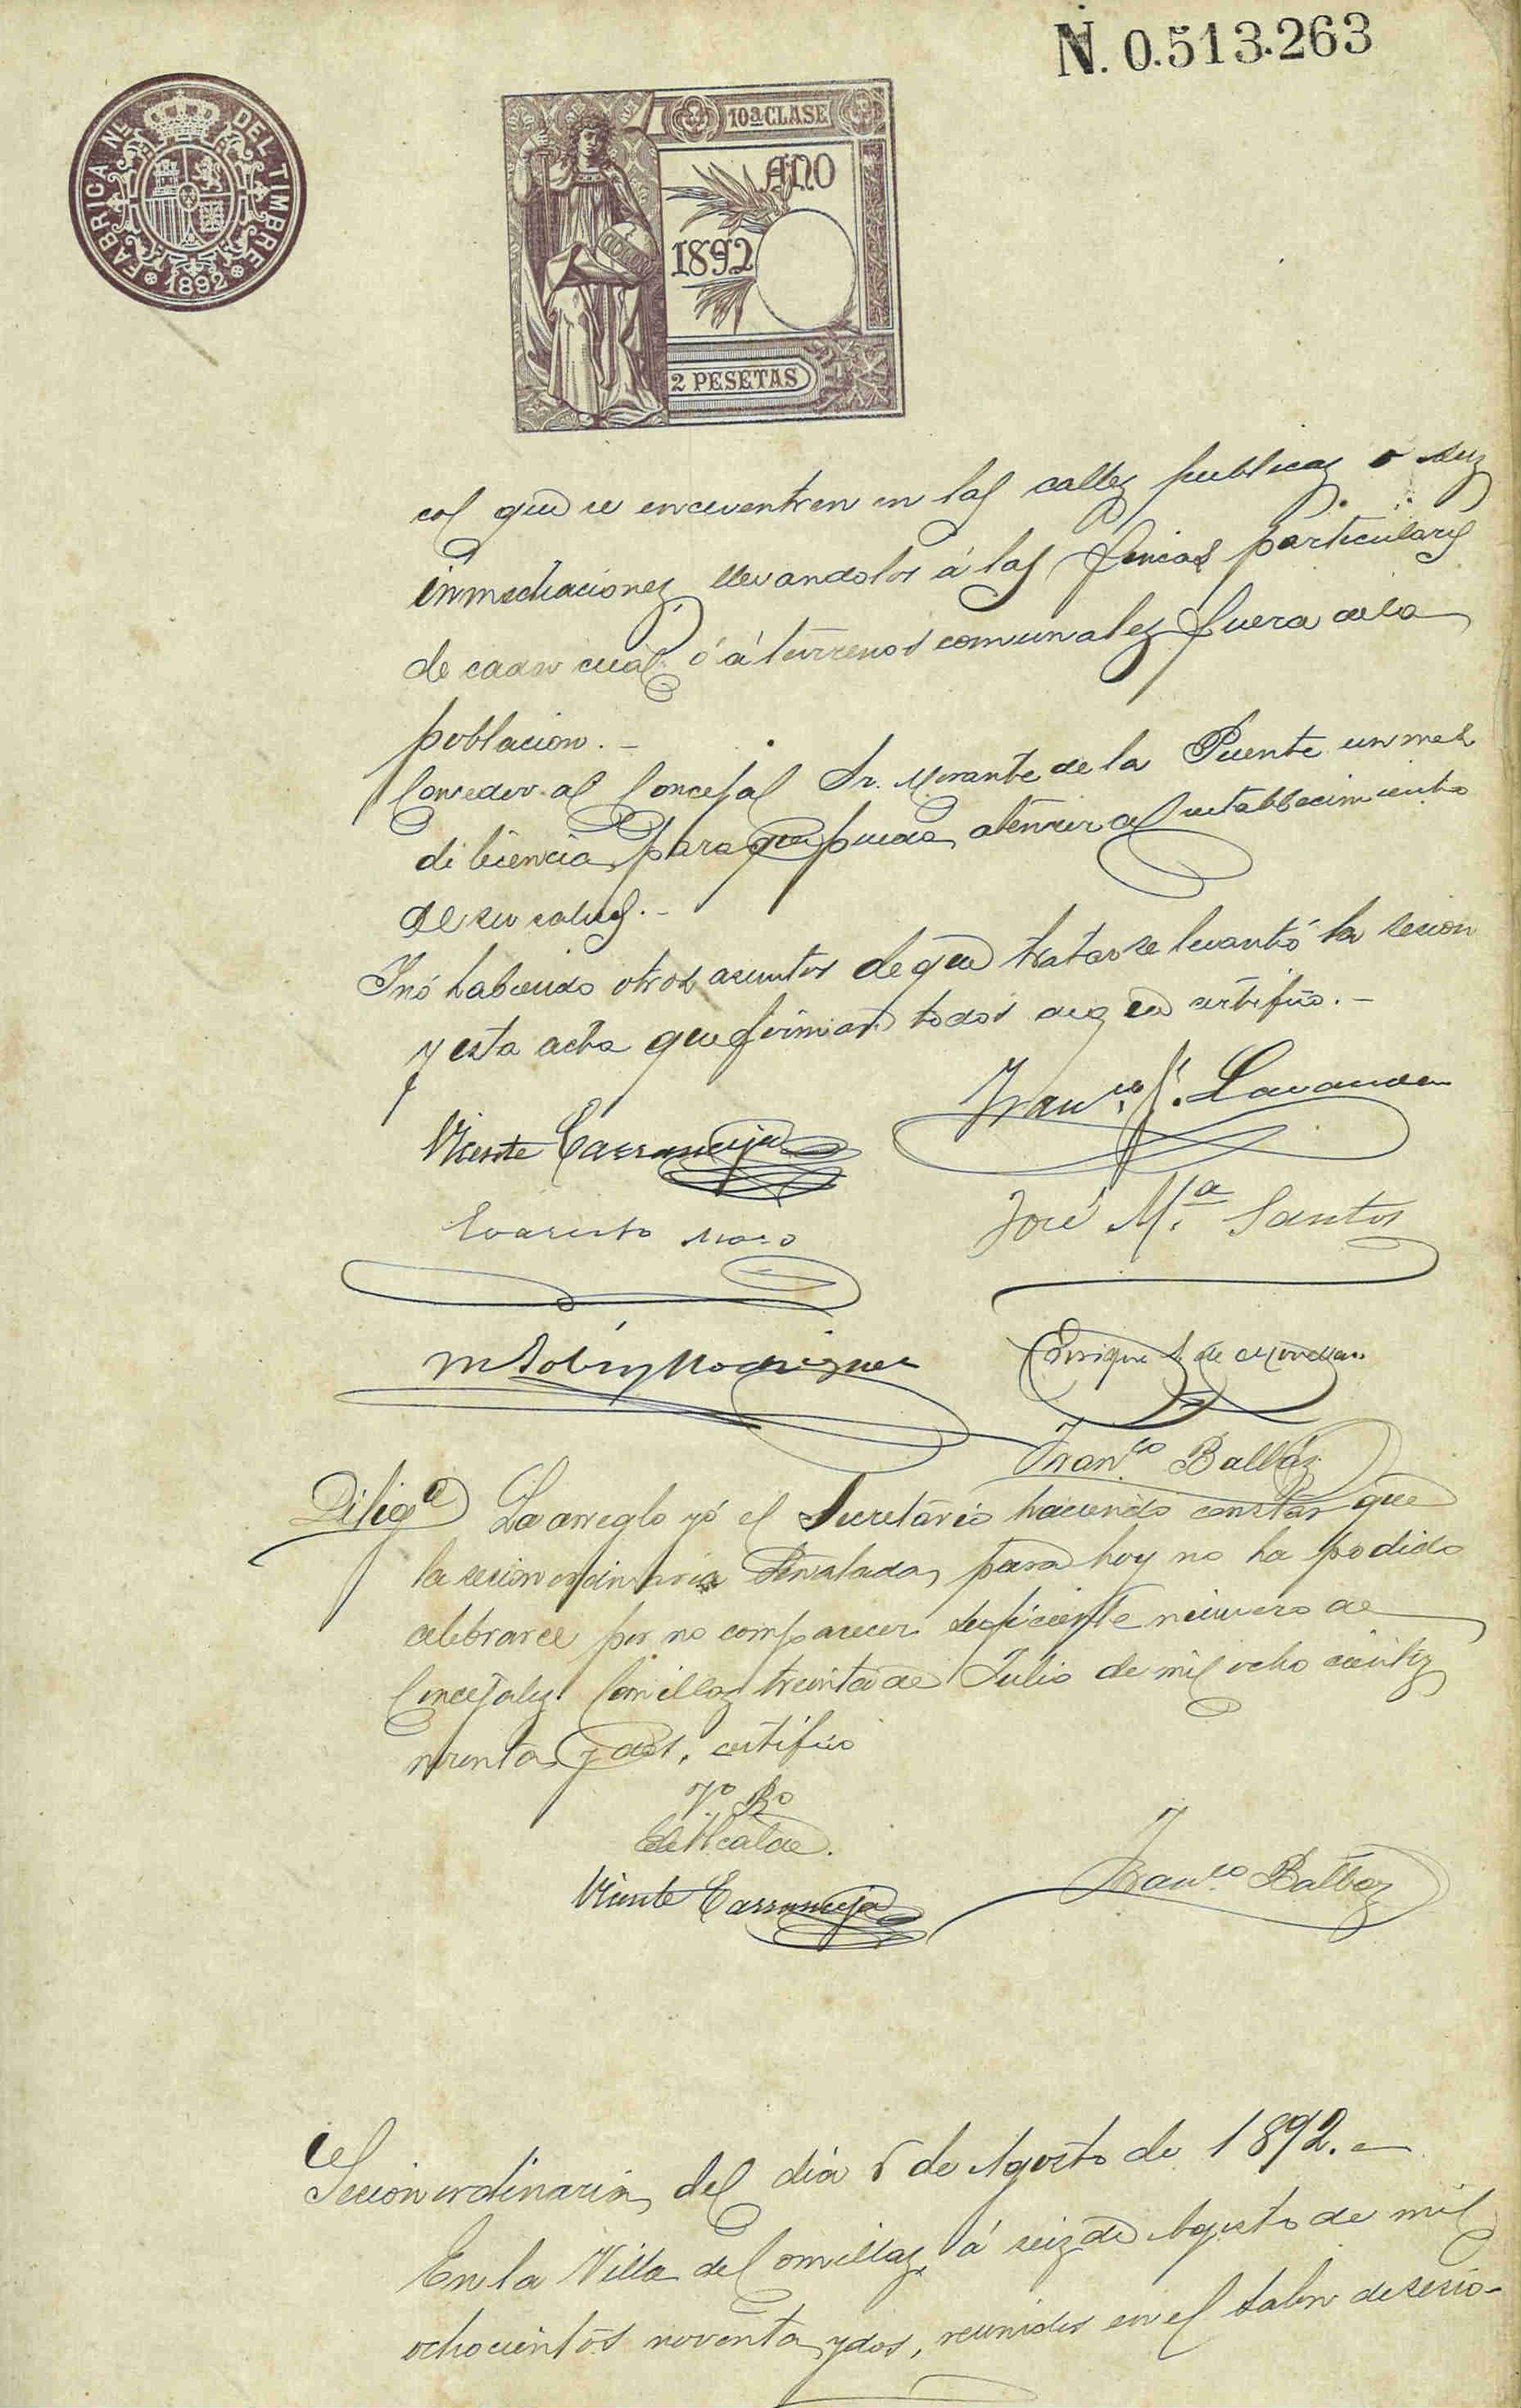 N. 0.513.263
FABRICA Nᴸ DEL TIMBRE
1892
10ª CLASE
AÑO
1892
2 PESETAS
cos que se encuentren en las calles publicas o sus
inmediaciones, llevandolos á las fincas particulares
de cada cual ó á terrenos comunales fuera de la
poblacion. –
Conceder al Concejal Sr. Morante de la Puente un mes
de licencia para que pueda atender al restablecimiento
de su salud. –
Y nó habiendo otros asuntos de que tratar se levantó la sesion
y esta acta que firman todos de q. certifico. –
Vicente Carranceja
Franco. S. Lavandera
Evaristo Moro
José M.ª Santos
M Tobin y Rodriguez
Enrique S. de Movellan
Franco. Balbás
Diliga La arreglo yó el Secretario haciendo constar que
la sesion ordinaria señalada para hoy no ha podido
celebrarce por no comparecer suficiente número de
Concejales Comillas treinta de Julio de mil ocho cientos
noventa y dos, certifico
Vº Bº
El Alcalde.
Vicente Carranceja
Franco. Balbas
Secion ordinaria del dia 6 de Agosto de 1892. –
En la Villa de Comillas, á seis de Agosto de mil
ochocientos noventa y dos, reunidos en el salon de sesio-